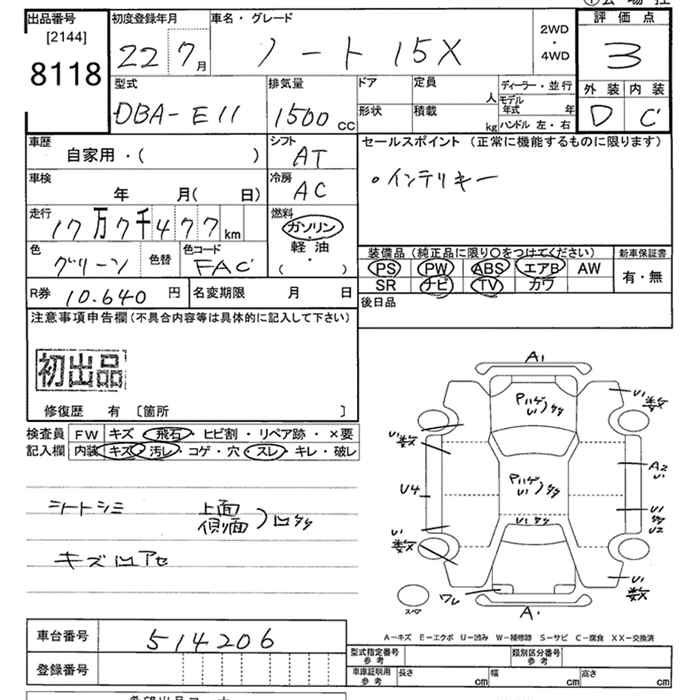 出品番号
[2144]
8118
初度登録年月
22 7月
車名・グレード
ノート 15X
2WD
・
4WD
評価点
3
外装 内装
D C
型式
DBA-E11
排気量
1500 cc
ドア 定員 人
形状 積載 kg
ディーラー・並行
モデル年式 年
ハンドル 左・右
車歴
自家用・( )
シフト
AT
セールスポイント (正常に機能するものに限ります)
・インテリキー
車検
年 月( 日)
冷房
AC
走行
17万7千477km
燃料
ガソリン
軽油
( ・ )
色
グリーン
色替
色コード
FAC
装備品 (純正品に限り○をつけてください)
PS PW ABS エアB AW
SR ナビ TV カワ
新車保証書
有・無
R券 10.640円
名変期限 月 日
後日品
注意事項申告欄(不具合内容等は具体的に記入して下さい)
初出品
修復歴 有 〔箇所 〕
検査員記入欄
FW キズ・飛石・ヒビ割・リペア跡・×要
内装 キズ・汚レ・コゲ・穴・スレ・キレ・破レ
シートシミ
上面
側面
A1
U1
数
U1
数
A2
U1
U4
U1
U2
U1
数
U1
数
ワレ
スペア
A-キズ E-エクボ U-凹み W-補修跡 S-サビ C-腐食 XX-交換済
車台番号
514206
登録番号
型式指定番号
参考
類別区分番号
参考
車庫証明用
参考
長さ cm
幅 cm
高さ cm